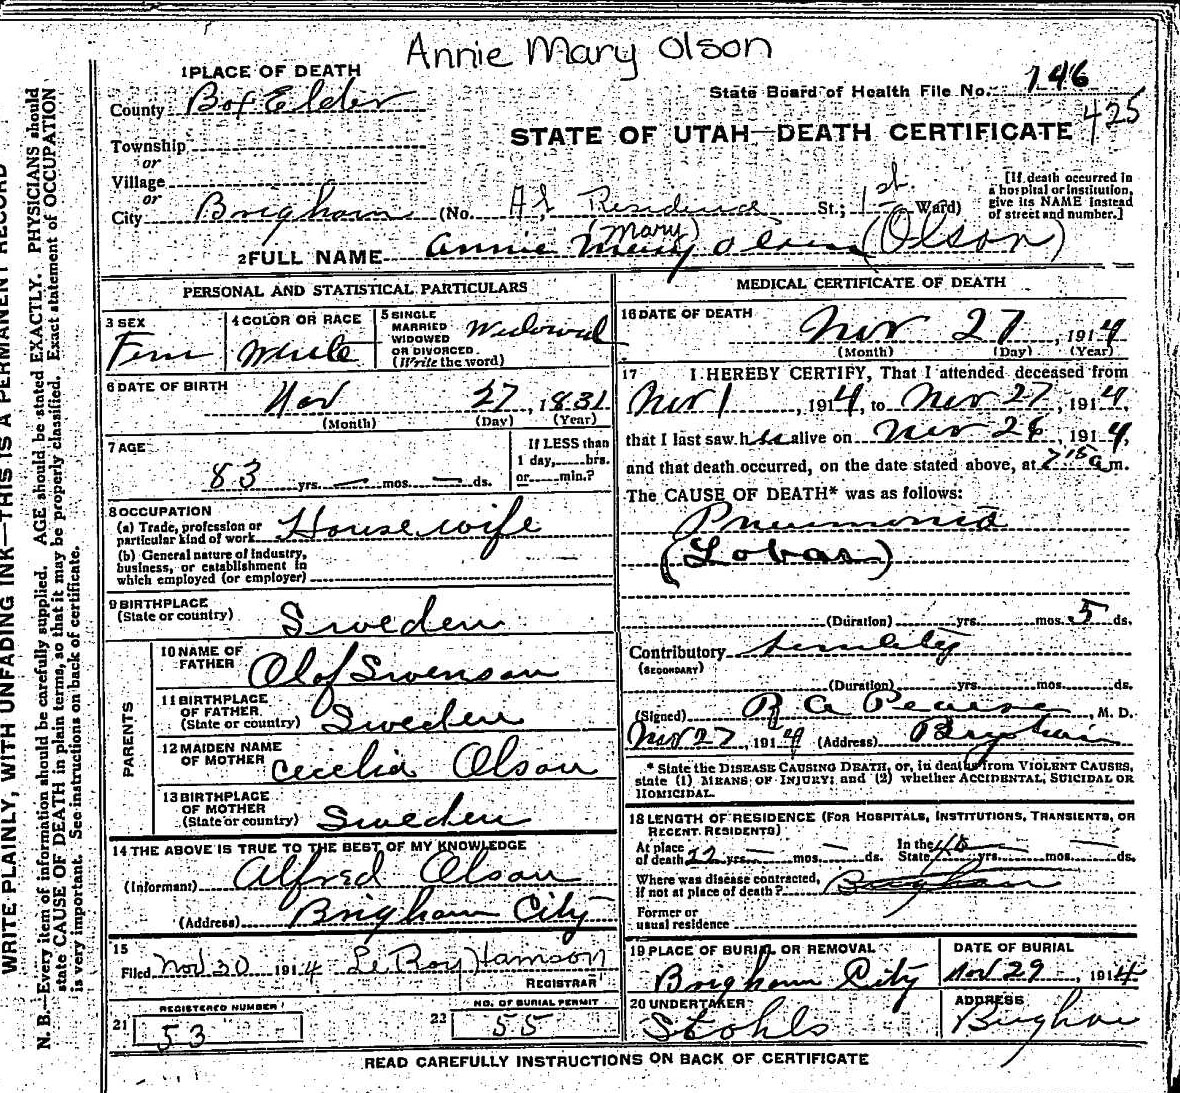 Annie Mary Olson
1 PLACE OF DEATH
County Box Elder
State Board of Health File No. 146
425
STATE OF UTAH—DEATH CERTIFICATE
Township
or
Village
or
City Brigham (No. At Residence St.; 1st Ward)
[If death occurred in a hospital or institution, give its NAME instead of street and number.]
(Mary)
2 FULL NAME Annie Mary Olson (Olson)
PERSONAL AND STATISTICAL PARTICULARS
3 SEX Fem
4 COLOR OR RACE White
5 SINGLE MARRIED WIDOWED OR DIVORCED (Write the word) Widowed
6 DATE OF BIRTH Nov 27, 1831
(Month) (Day) (Year)
7 AGE 83 yrs. — mos. — ds.
If LESS than 1 day, hrs. or min.?
8 OCCUPATION
(a) Trade, profession or particular kind of work Housewife
(b) General nature of industry, business, or establishment in which employed (or employer)
9 BIRTHPLACE (State or country) Sweden
PARENTS
10 NAME OF FATHER Olof Swenson
11 BIRTHPLACE OF FATHER (State or country) Sweden
12 MAIDEN NAME OF MOTHER Cecelia Olson
13 BIRTHPLACE OF MOTHER (State or country) Sweden
14 THE ABOVE IS TRUE TO THE BEST OF MY KNOWLEDGE
(Informant) Alfred Olson
(Address) Brigham City
15 Filed Nov 30 1914 Le Roy
REGISTRAR
REGISTERED NUMBER
21 53
NO. OF BURIAL PERMIT
22 55
MEDICAL CERTIFICATE OF DEATH
16 DATE OF DEATH Nov 27, 1914
(Month) (Day) (Year)
17 I HEREBY CERTIFY, That I attended deceased from
Nov 1, 1914, to Nov 27, 1914,
that I last saw her alive on Nov 26, 1914,
and that death occurred, on the date stated above, at 7 15 a m.
The CAUSE OF DEATH* was as follows:
Pneumonia
(Lobar)
(Duration) yrs. mos. 5 ds.
Contributory senility
(SECONDARY)
(Duration) yrs. mos. ds.
(Signed) R A Pearse, M. D.
Nov 27, 1914 (Address) Brigham
* State the DISEASE CAUSING DEATH, or, in deaths from VIOLENT CAUSES, state (1) MEANS OF INJURY; and (2) whether ACCIDENTAL, SUICIDAL OR HOMICIDAL.
18 LENGTH OF RESIDENCE (FOR HOSPITALS, INSTITUTIONS, TRANSIENTS, OR RECENT RESIDENTS)
At place of death yrs. — mos. — ds. In the State yrs. mos. ds.
Where was disease contracted, if not at place of death? Brigham
Former or usual residence
19 PLACE OF BURIAL OR REMOVAL Brigham City
DATE OF BURIAL Nov 29, 1914
20 UNDERTAKER Stohls
ADDRESS Brigham
READ CAREFULLY INSTRUCTIONS ON BACK OF CERTIFICATE
WRITE PLAINLY, WITH UNFADING INK—THIS IS A PERMANENT RECORD
N. B.—Every item of information should be carefully supplied. AGE should be stated EXACTLY. PHYSICIANS should
state CAUSE OF DEATH in plain terms, so that it may be properly classified. Exact statement of OCCUPATION
is very important. See instructions on back of certificate.